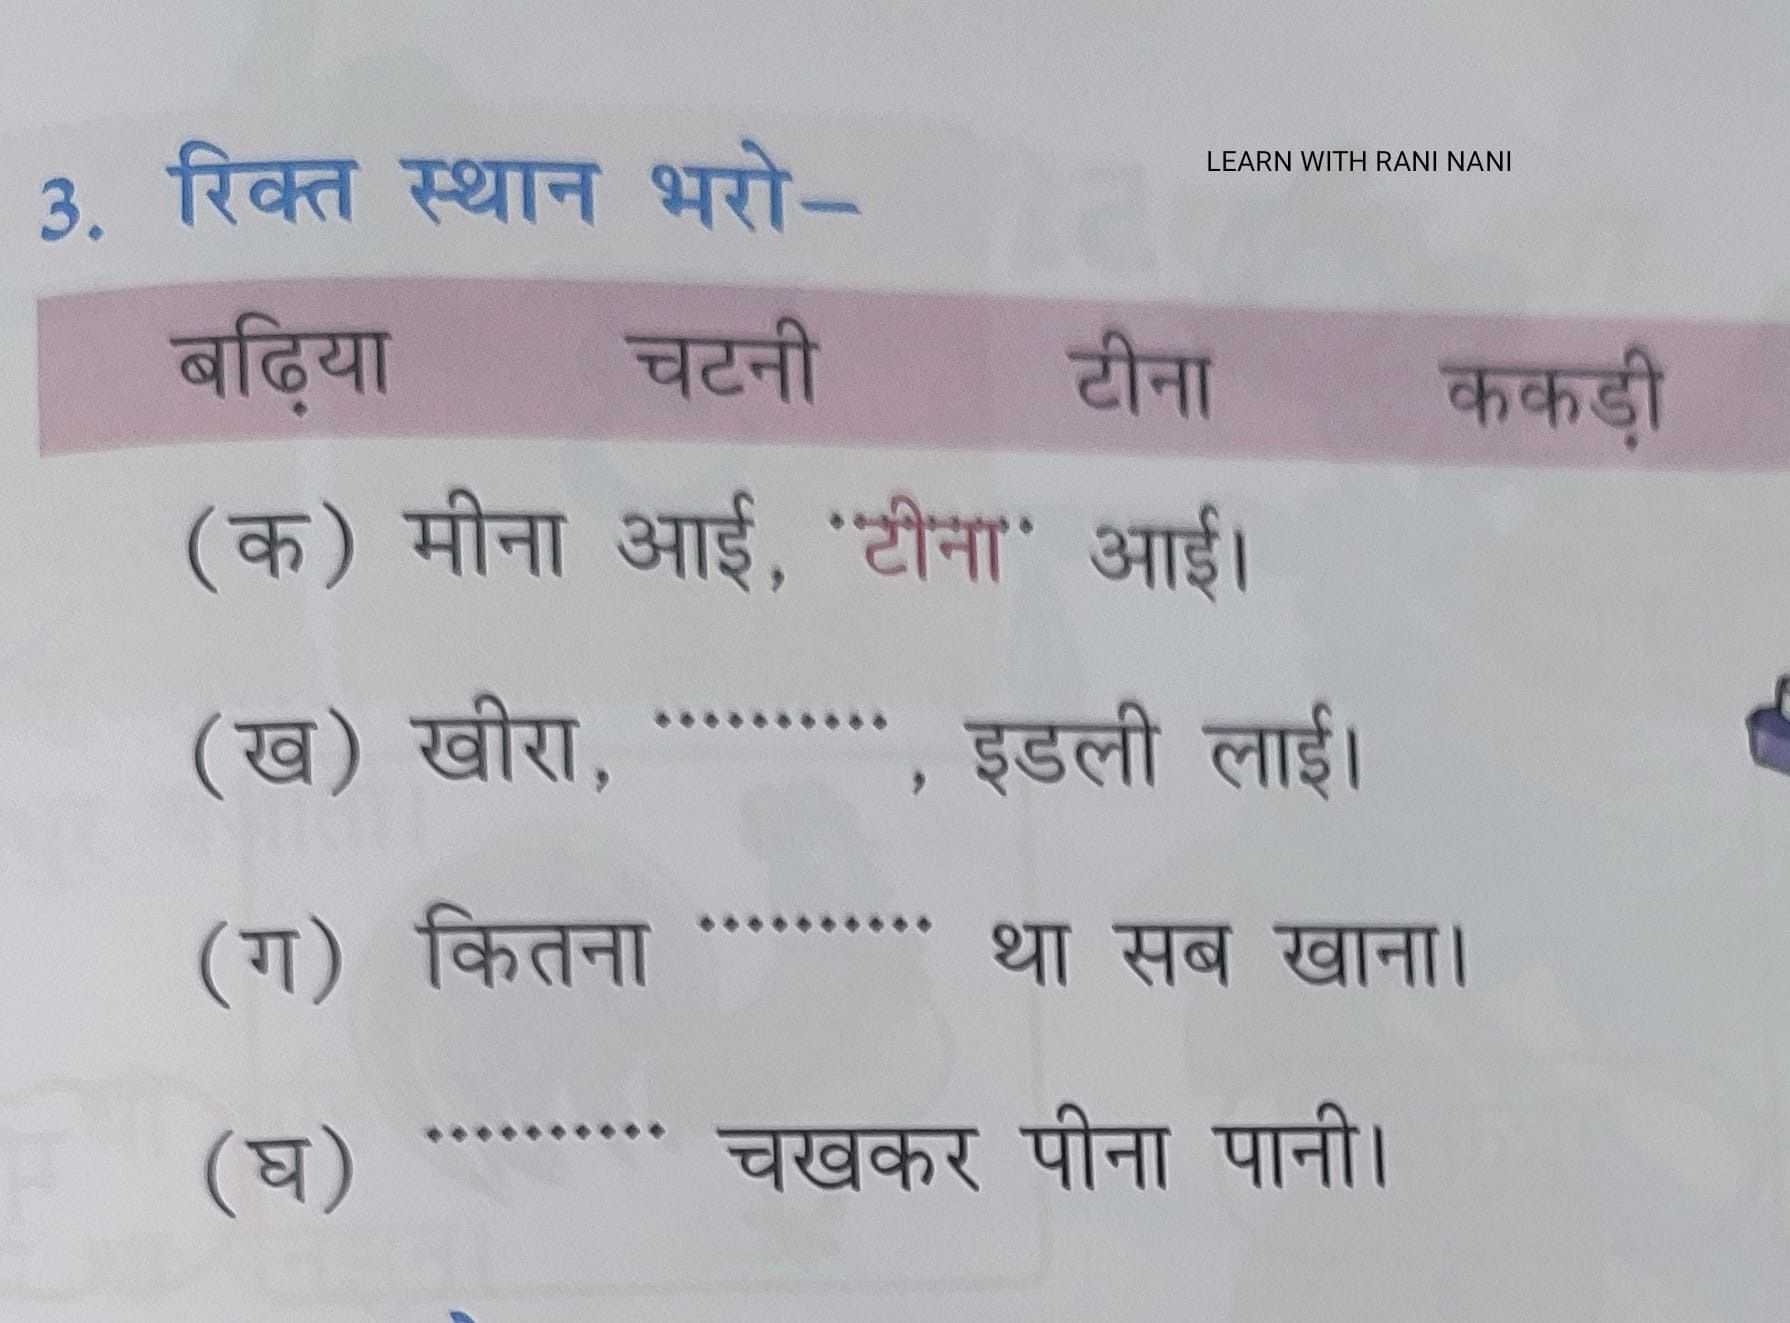 LEARN WITH RANI NANI
3. रिक्त स्थान भरो–
बढ़िया चटनी टीना ककड़ी
(क) मीना आई, ..टीना.. आई।
(ख) खीरा, .........., इडली लाई।
(ग) कितना .......... था सब खाना।
(घ) .......... चखकर पीना पानी।